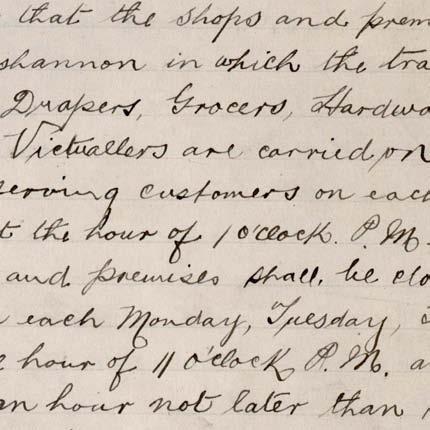 that the shops and prem
shannon in which the tra
Drapers, Grocers, Hardwa
Victuallers are carried on
serving customers on each
t the hour of 1 o'clock. P.M.
and premises shall be clo
each Monday, Tuesday,
e hour of 11 o'clock P.M. a
an hour not later than